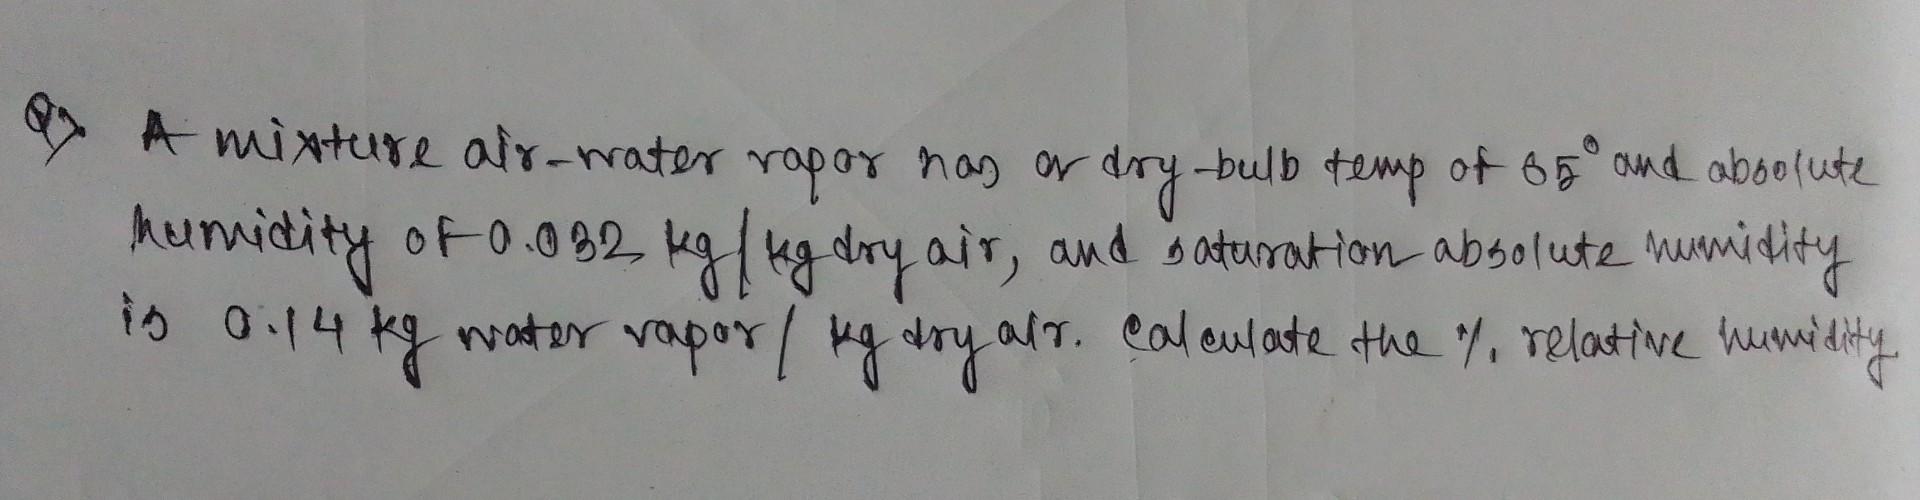 Q> A mixture air-water vapor has a dry-bulb temp of 65° and absolute
humidity of 0.032 kg/kg dry air, and saturation absolute humidity
is 0.14 kg water vapor/ kg dry air. Calculate the %. relative humidity